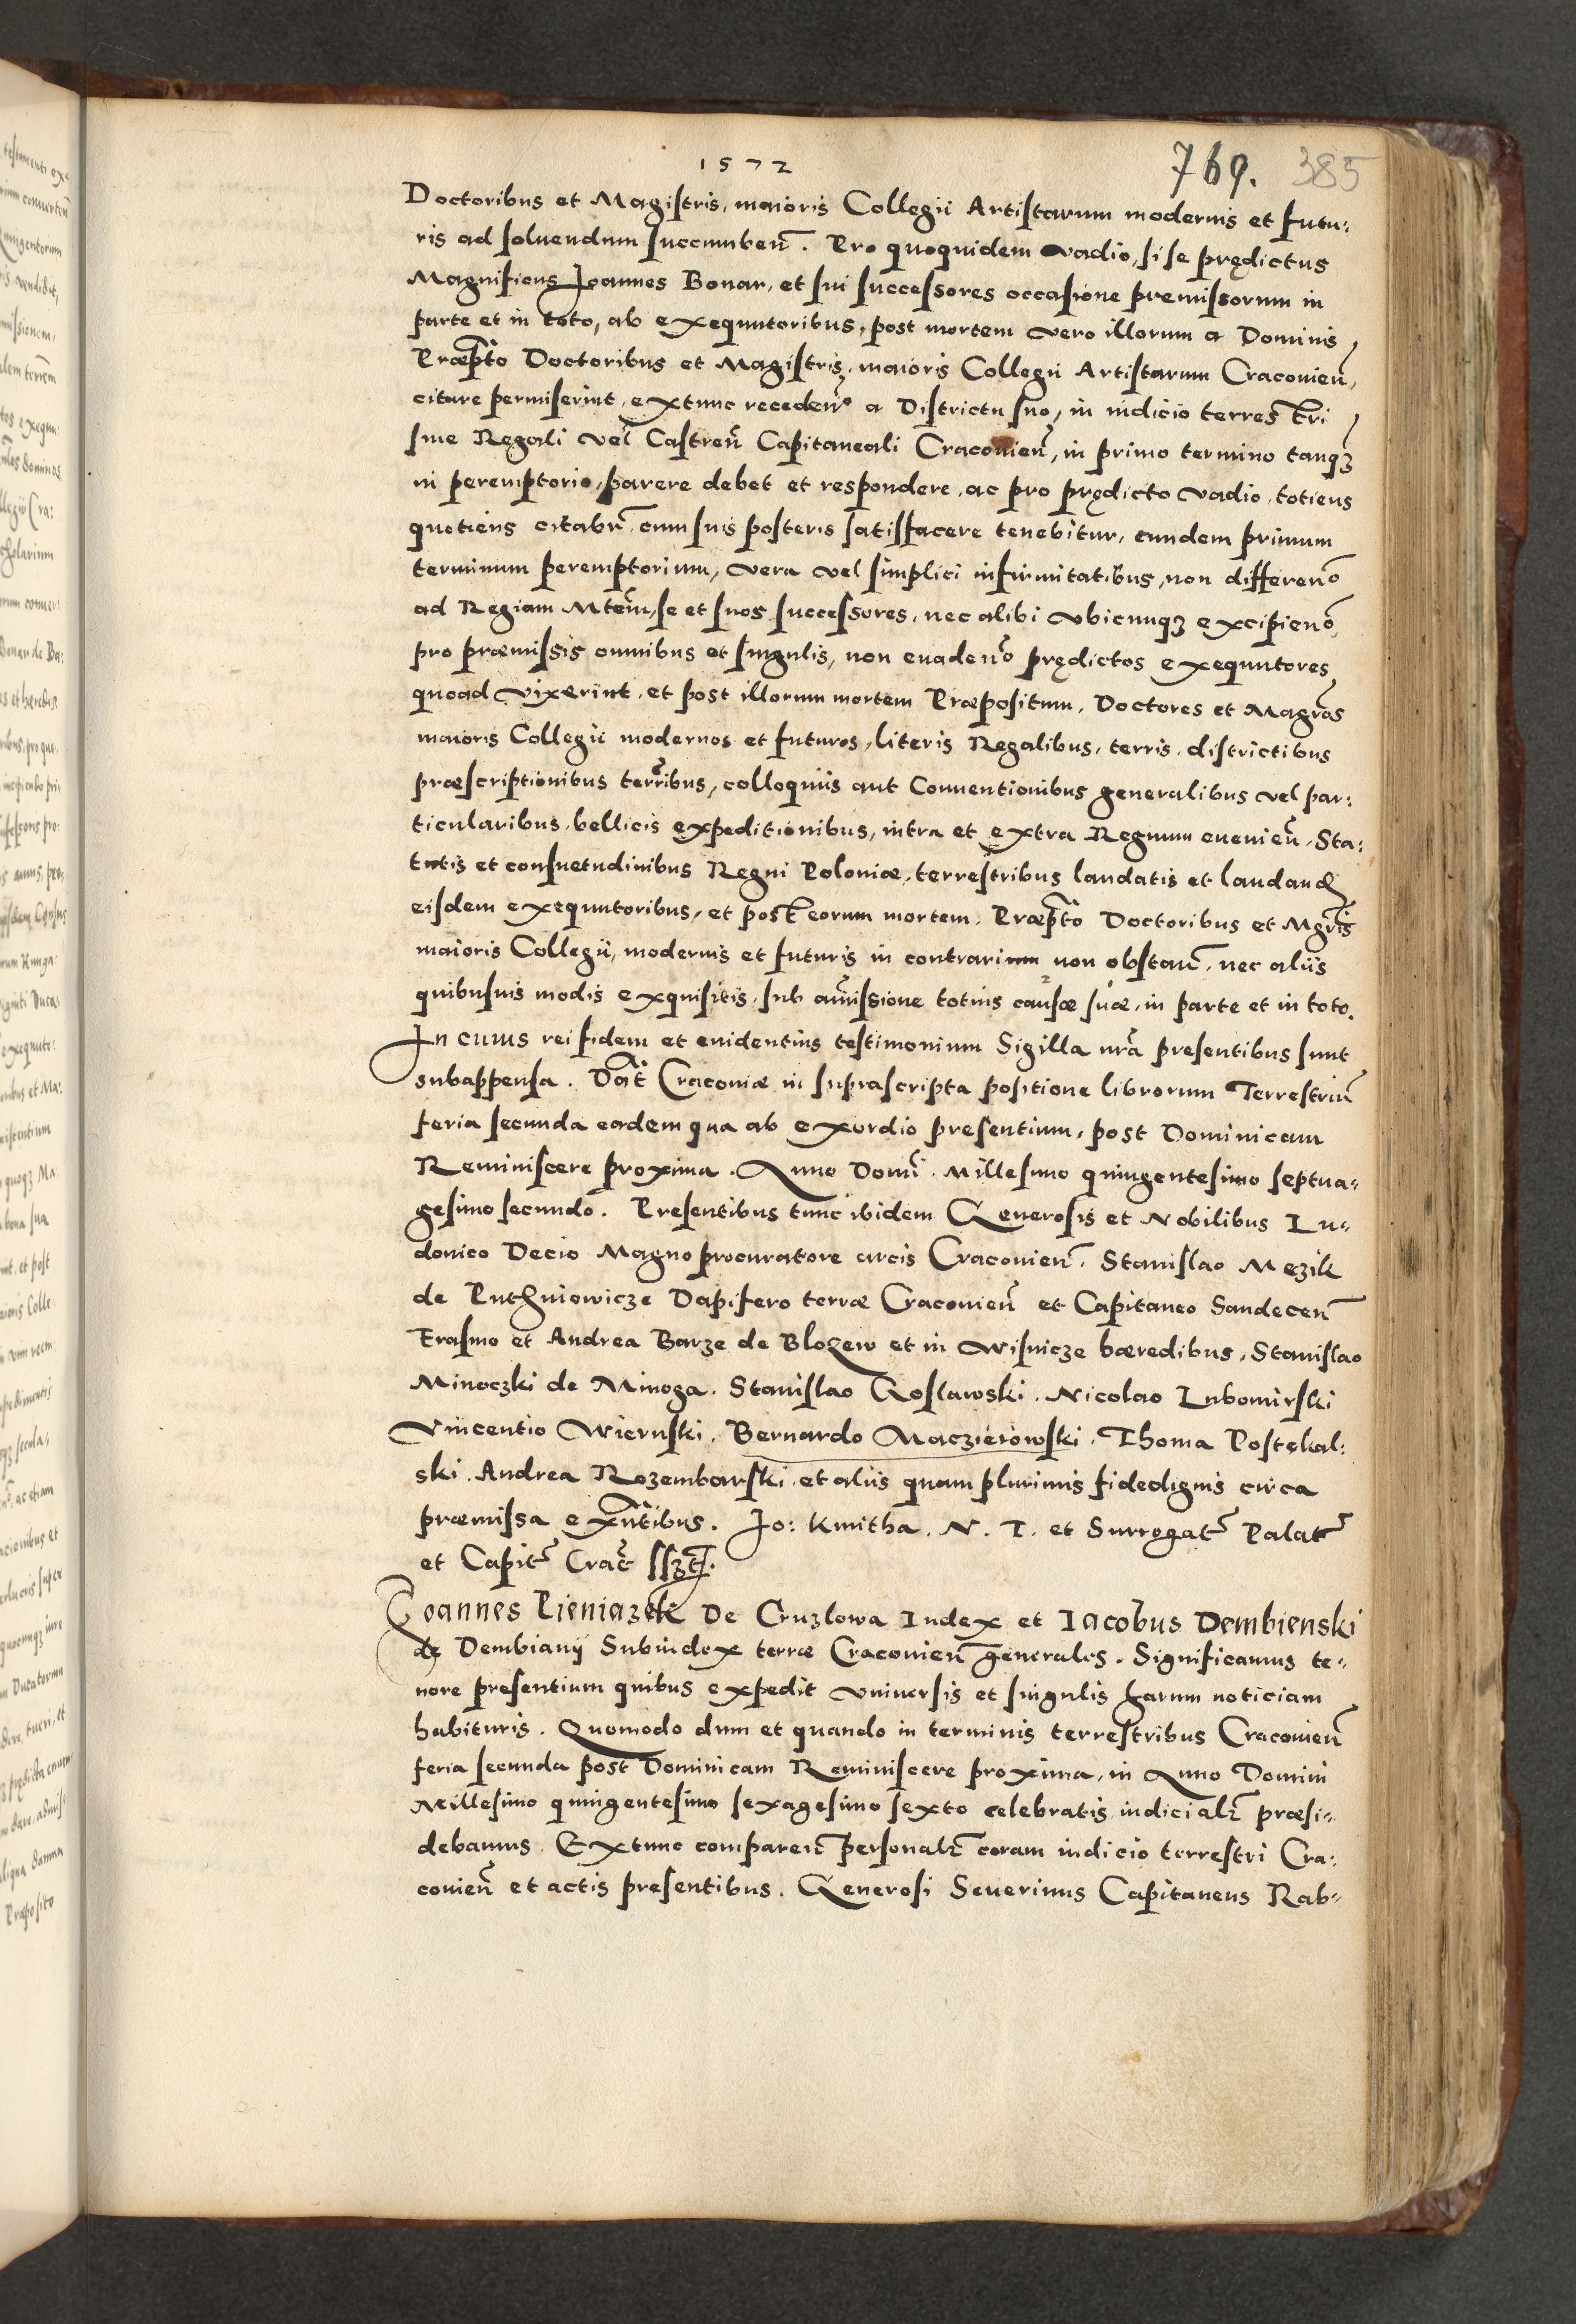 1572
769. 385
Doctoribus et Magistris, maioris Collegii Artistarum modernis et futu:
ris ad soluendum succumben̄. Pro quoquidem vadio, si se prędictus
Magnificus Joannes Bonar, et sui successores occasione premissorum in
parte et in toto, ab exequutoribus, post mortem vero illorum a Dominis
Præpto Doctoribus et Magistris, maioris Collegii Artistarum Craconien̄,
citare permiserint, extunc recedeno a Districtu suo, in iudicio terrestri
siue Regali vel Castren̄ Capitaneali Craconien̄, in primo termino tanqꝫ
in peremptorio, parere debet et respondere, ac pro prędicto vadio, totiens
quotiens citabr̄, cum suis posteris satisfacere tenebitur, eundem primum
terminum peremptorium, vera vel simplici infirmitatibus, non differeno
ad Regiam Mtem̄, se et suos successores, nec alibi vbicunqꝫ excipieno,
pro præmissis omnibus et singulis, non euadeno prędictos exequutores
quoad vixerint, et post illorum mortem Præpositum, Doctores et Magros
maioris Collegii modernos et futuros, literis Regalibus, terris, districtibus
præscriptionibus terribus, colloquiis aut Conuentionibus generalibus vel par:
ticularibus, bellicis expeditionibus, intra et extra Regnum euenien̄, Sta:
tutis et consuetudinibus Regni Poloniæ, terrestribus laudatis et laudand
eisdem exequutoribus, et post eorum mortem, Præpto Doctoribus et Mgris
maioris Collegii, modernis et futuris in contrarium non obstan̄, nec aliis
quibusuis modis exquisitis, sub amissione totius causæ suæ, in parte et in toto.
In cuius rei fidem et euidentius testimonium Sigilla nr̄a presentibus sunt
subappensa. Dat Craconiæ in suprascripta positione librorum Terrestriu̅
feria secunda eadem qua ab exordio presentium, post Dominicam
Reminiscere proxima. Anno Domi. Millesimo quingentesimo septua-
gesimo secundo. Presentibus tunc ibidem Generosis et Nobilibus Lu-
douico Decio Magno procuratore arcis Craconien̄. Stanislao Męzik
de Puthniowicze Dapifero terræ Craconien̄ et Capitaneo Sandecen̄
Erasmo et Andrea Barze de Blozew et in Wisnicze hæredibus, Stanislao
Minoczki de Minoga. Stanislao Goslawski. Nicolao Lubomirski
Vincentio Wiernski. Bernardo Macziéiowski. Thoma Postękal:
ski. Andrea Rozembarski, et aliis quam plurimis fidedignis circa
præmissa exn̄tibus. Jo: Kmitha. N. T. et Surrogat Palat
et Capit Crac sszt.
Joannes Pieniazek De Cruzlowa Iudex et Iacobus Dembienski
de Dembianÿ Subiudex terræ Craconien̄ generales. Significamus te-
nore presentium quibus expedit vniuersis et singulis harum noticiam
habituris. Quomodo dum et quando in terminis terrestribus Craconien̄
feria secunda post Dominicam Reminiscere proxima, in Anno Domini
Millesimo quingentesimo sexagesimo sexto celebratis iudicialr̄ præsi-
debamus. Extunc comparen̄ personalr̄ coram iudicio terrestri Cra:
conien̄ et actis presentibus. Generosi Seuerinus Capitaneus Rab-